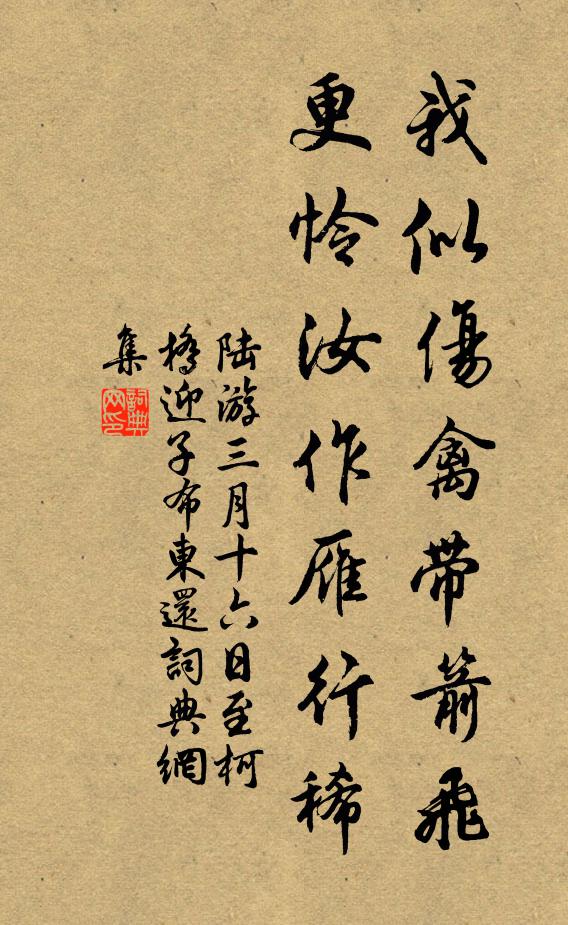 我似傷禽帶箭飛
更怜汝作雁行稀
陆游三月十六日至柯
橋迎子布東還詞典網
集
詞典
网印